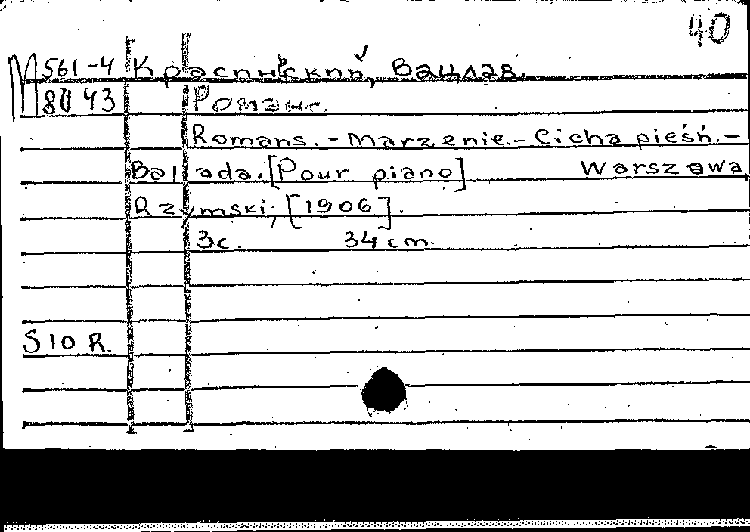 40
M 561-4 Красиньский, Вацлав.
80 43 Романс.
Romans. - Marzenie. - Cicha pieśń. -
Ballada. [Pour piano] Warszawa
Rzymski; [1906].
3с. 34 cm.
S 10 R.